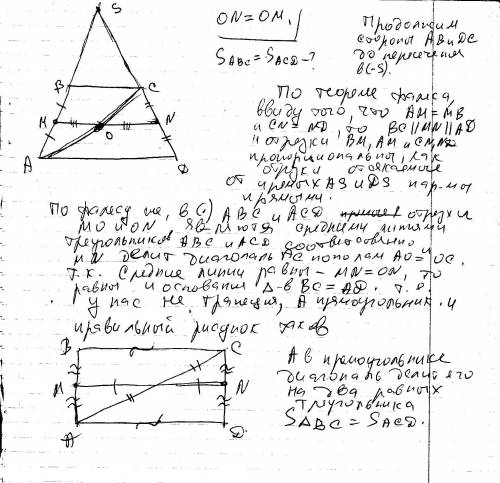 S
ON = OM,
SABC = SACD - ?
Продолжим
стороны AB и DC
до пересечения
в (·S).
B C
M N
O
A D
По теореме фалеса,
ввиду того, что AM = MB
и CN = ND, то BC || MN || AD
и отрезки BM, AM и CN, ND
пропорциональны, как
отрезки отсекаемые
от прямых AS и DS пар-ми
прямыми.
По фалесу же, в ABC и ACD отрезки
MO и ON являются средними линиями
треугольников ABC и ACD соответственно и
MN делит диагональ AC пополам AO = OC.
Т.к. средние линии равны - MN = ON, то
равны и основания Δ-в BC = AD. Т.о.
у нас не трапеция, а прямоугольник и
правильный рисунок таков
B C
M N
A D
А в прямоугольнике
диагональ делит его
на два равных
треугольника
SABC = SACD.